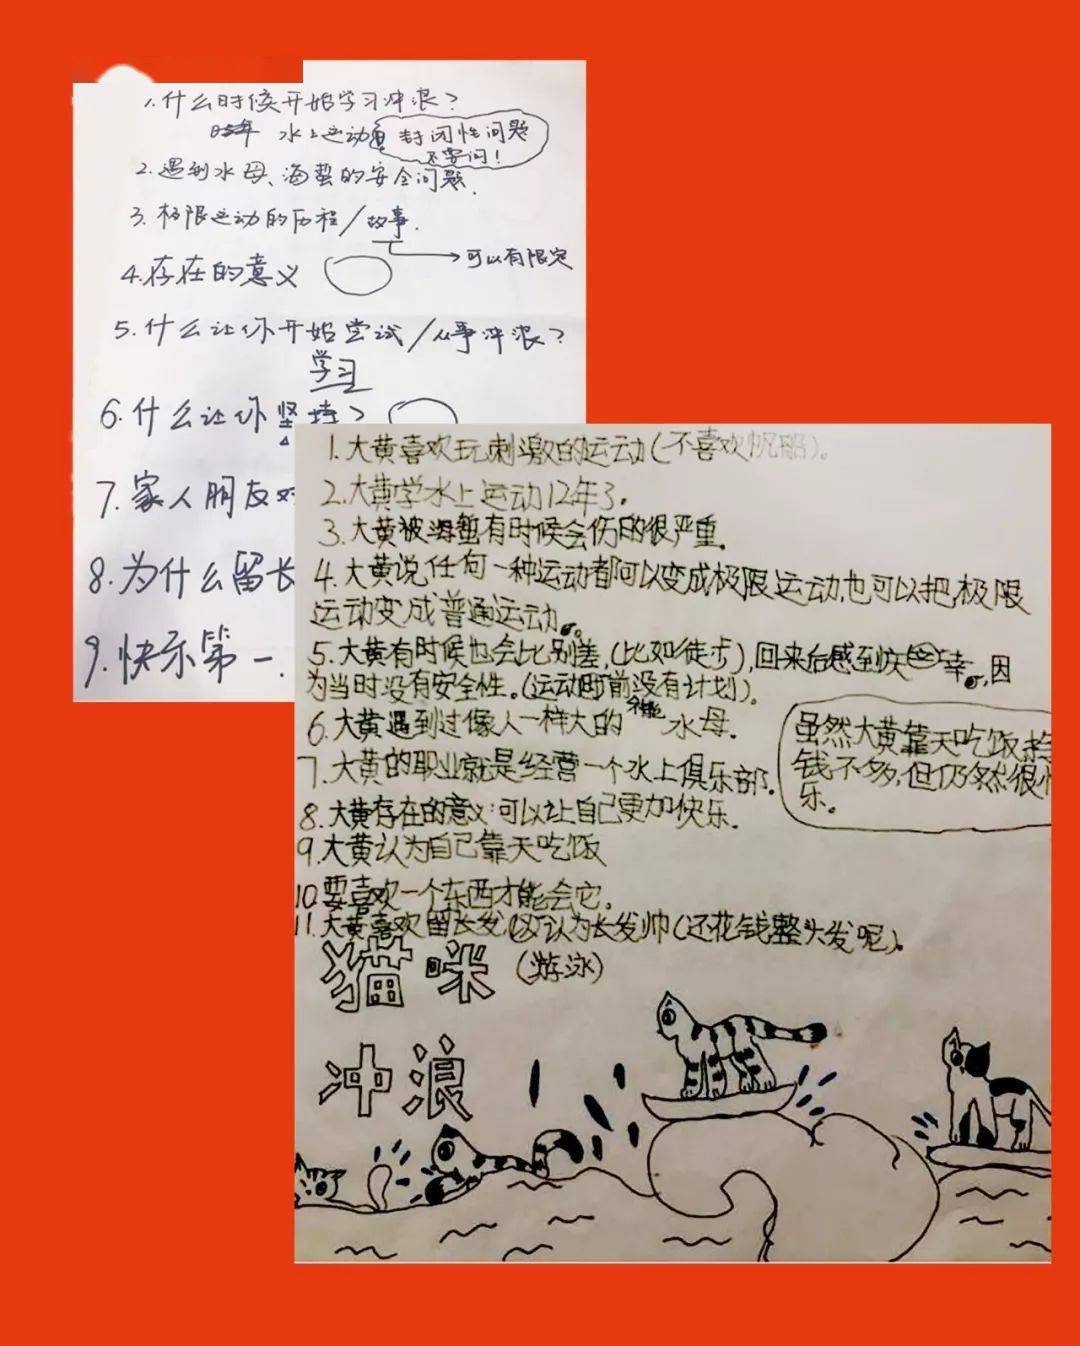 1. 什么时候开始学习冲浪?
水上运动 封闭性问题
不要问!
2. 遇到水母、海蜇的安全问题.
3. 极限运动的历程/故事.
可以有限定
4. 存在的意义
5. 什么让你开始尝试/从事冲浪?
学习
6. 什么让你坚持?
7. 家人朋友对
8. 为什么留长
9. 快乐第一.
1. 大黄喜欢玩刺激的运动(不喜欢帆船)。
2. 大黄学水上运动12年了.
3. 大黄被海蜇有时候会伤的很严重.
4. 大黄说任何一种运动都可以变成极限运动,也可以把极限
运动变成普通运动。
5. 大黄有时候也会比别差,(比如徒步),回来后感到庆幸,因
为当时没有安全性。(运动时前没有计划).
6. 大黄遇到过像人一样大的水母.
7. 大黄的职业就是经营一个水上俱乐部.
虽然大黄靠天吃饭,挣
钱不多,但仍然很快
乐。
8. 大黄存在的意义:可以让自己更加快乐.
9. 大黄认为自己靠天吃饭
10. 要喜欢一个东西才能会它.
11. 大黄喜欢留长发,认为长发帅(还花钱整头发呢).
猫咪 (游泳)
冲浪